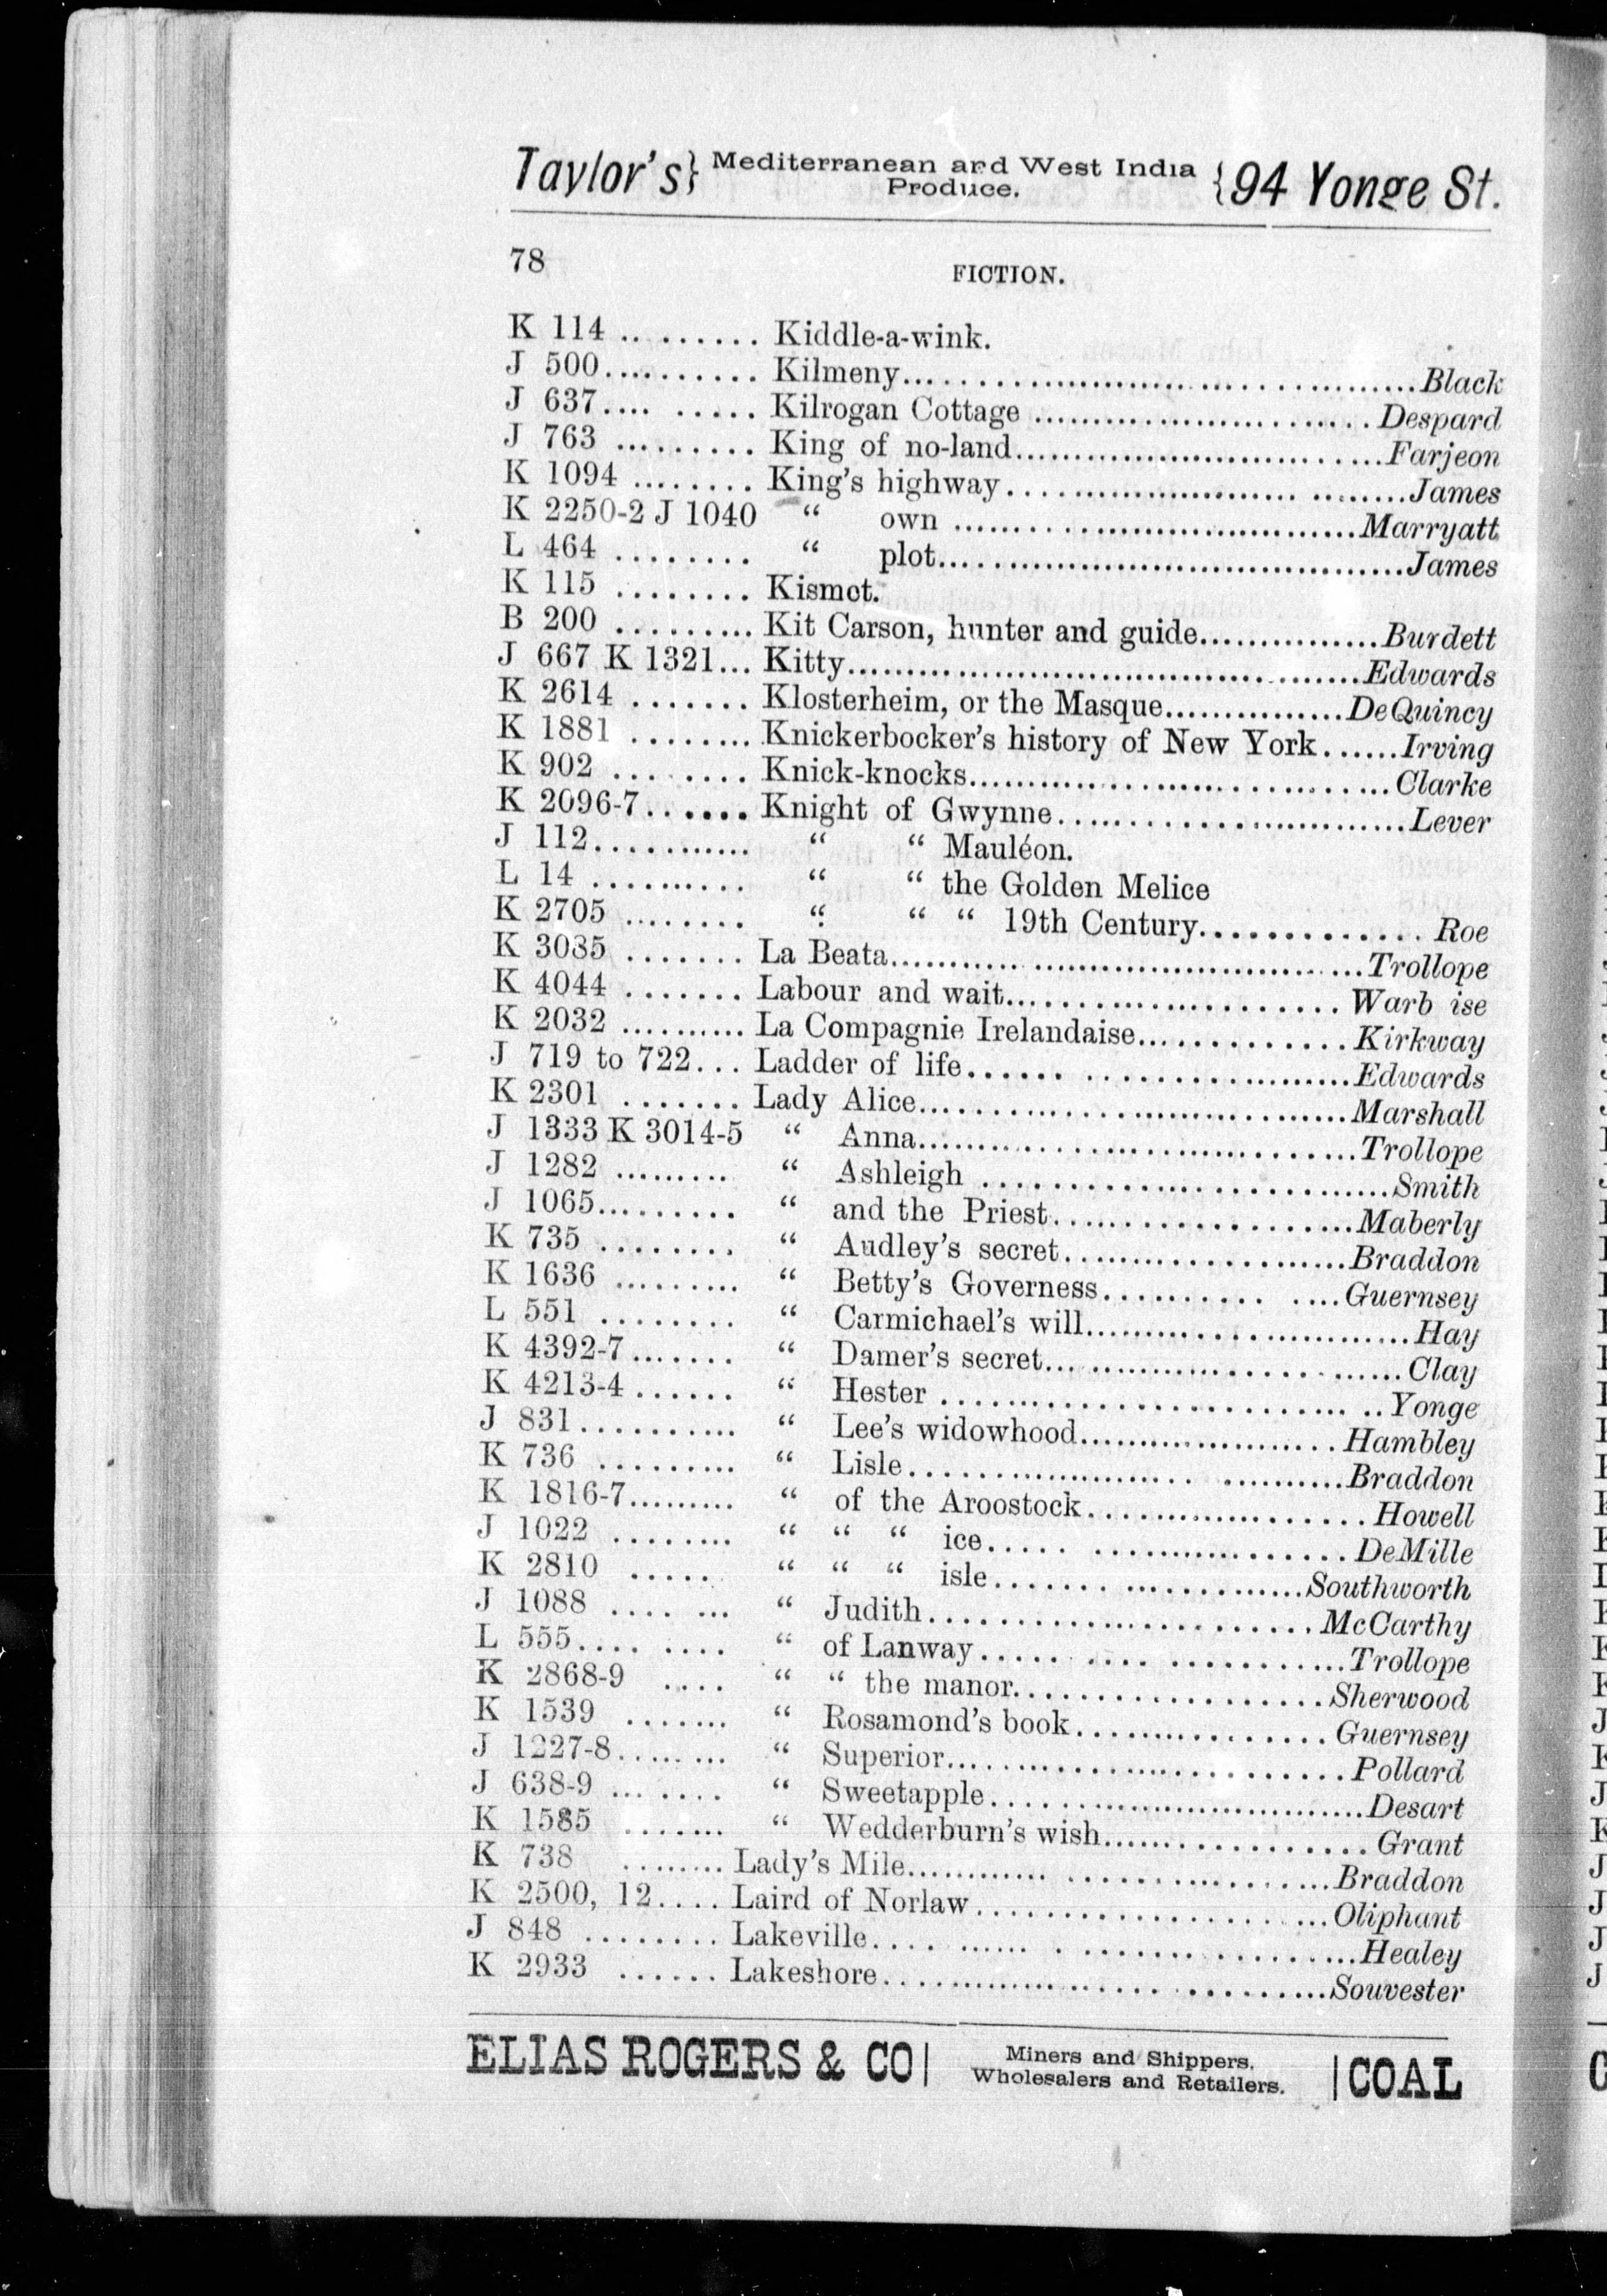 Taylor's} Mediterranean and West India Produce. {94 Yonge St.
78 FICTION.
K 114 .......... Kiddle-a-wink.
J 500.......... Kilmeny.......... Black
J 637.......... Kilrogan Cottage .......... Despard
J 763 .......... King of no-land.......... Farjeon
K 1094 .......... King's highway.......... James
K 2250-2 J 1040 “ own .......... Marryatt
L 464 .......... “ plot.......... James
K 115 .......... Kismet.
B 200 .......... Kit Carson, hunter and guide.......... Burdett
J 667 K 1321... Kitty.......... Edwards
K 2614 .......... Klosterheim, or the Masque.......... DeQuincy
K 1881 .......... Knickerbocker's history of New York...... Irving
K 902 .......... Knick-knocks.......... Clarke
K 2096-7...... Knight of Gwynne.......... Lever
J 112.......... “ “ Mauléon.
L 14 .......... “ “ the Golden Melice
K 2705 .......... “ “ “ 19th Century.......... Roe
K 3035 ....... La Beata.......... Trollope
K 4044 ....... Labour and wait.......... Warb ise
K 2032 .......... La Compagnie Irelandaise.......... Kirkway
J 719 to 722... Ladder of life.......... Edwards
K 2301 ....... Lady Alice.......... Marshall
J 1333 K 3014-5 “ Anna.......... Trollope
J 1282 ......... “ Ashleigh .......... Smith
J 1065......... “ and the Priest.......... Maberly
K 735 ........ “ Audley's secret.......... Braddon
K 1636 ......... “ Betty's Governess.......... Guernsey
L 551 ........ “ Carmichael's will.......... Hay
K 4392-7....... “ Damer's secret.......... Clay
K 4213-4...... “ Hester .......... Yonge
J 831.......... “ Lee's widowhood.......... Hambley
K 736 ......... “ Lisle.......... Braddon
K 1816-7......... “ of the Aroostock.......... Howell
J 1022 ......... “ “ “ ice.......... DeMille
K 2810 ..... “ “ “ isle.......... Southworth
J 1088 .... ... “ Judith.......... McCarthy
L 555.... .... “ of Lanway.......... Trollope
K 2868-9 .... “ “ the manor.......... Sherwood
K 1539 ....... “ Rosamond's book.......... Guernsey
J 1227-8........ “ Superior.......... Pollard
J 638-9 ... .... “ Sweetapple.......... Desart
K 1585 ....... “ Wedderburn's wish.......... Grant
K 738 ........ Lady's Mile.......... Braddon
K 2500, 12.... Laird of Norlaw.......... Oliphant
J 848 ........ Lakeville.......... Healey
K 2933 ...... Lakeshore.......... Souvester
ELIAS ROGERS & CO | Miners and Shippers, Wholesalers and Retailers. | COAL